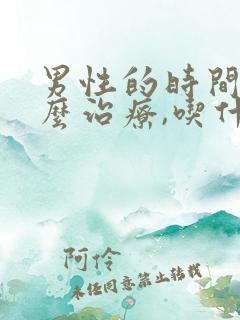 男性的時間
麼治療,喫什
阿伶
未任同意禁止转载